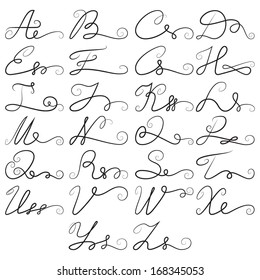 A B C D
E F G H
I J K L
M N O P
Q R S T
U V W X
Y Z
shutterstock.com · 168345053